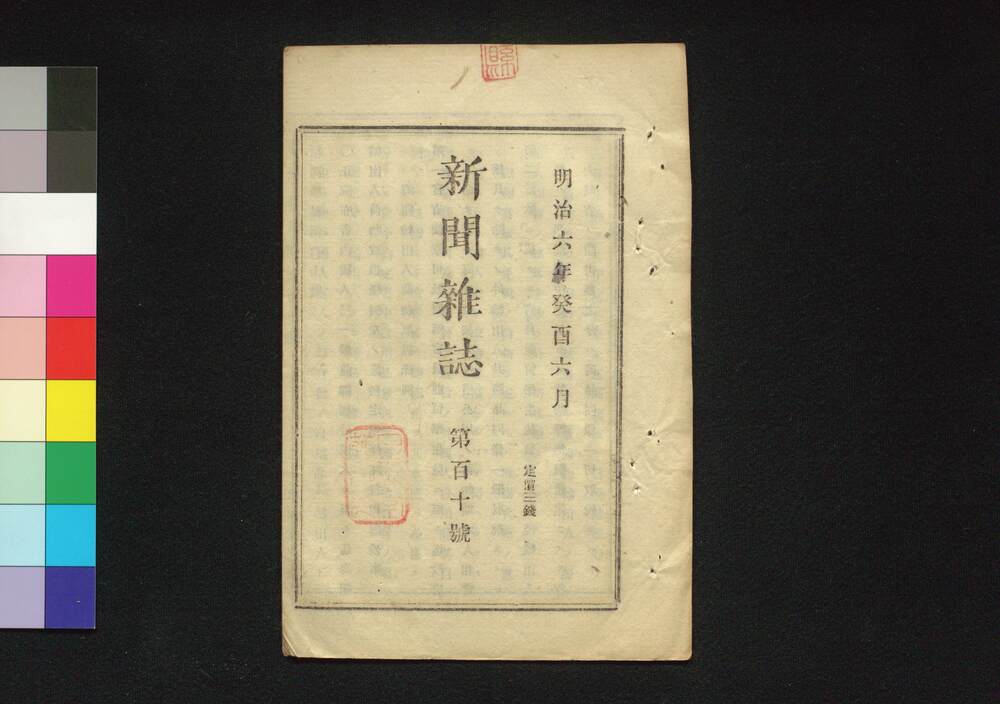 明治六年癸酉六月
定價三錢
新聞雜誌
第百十號